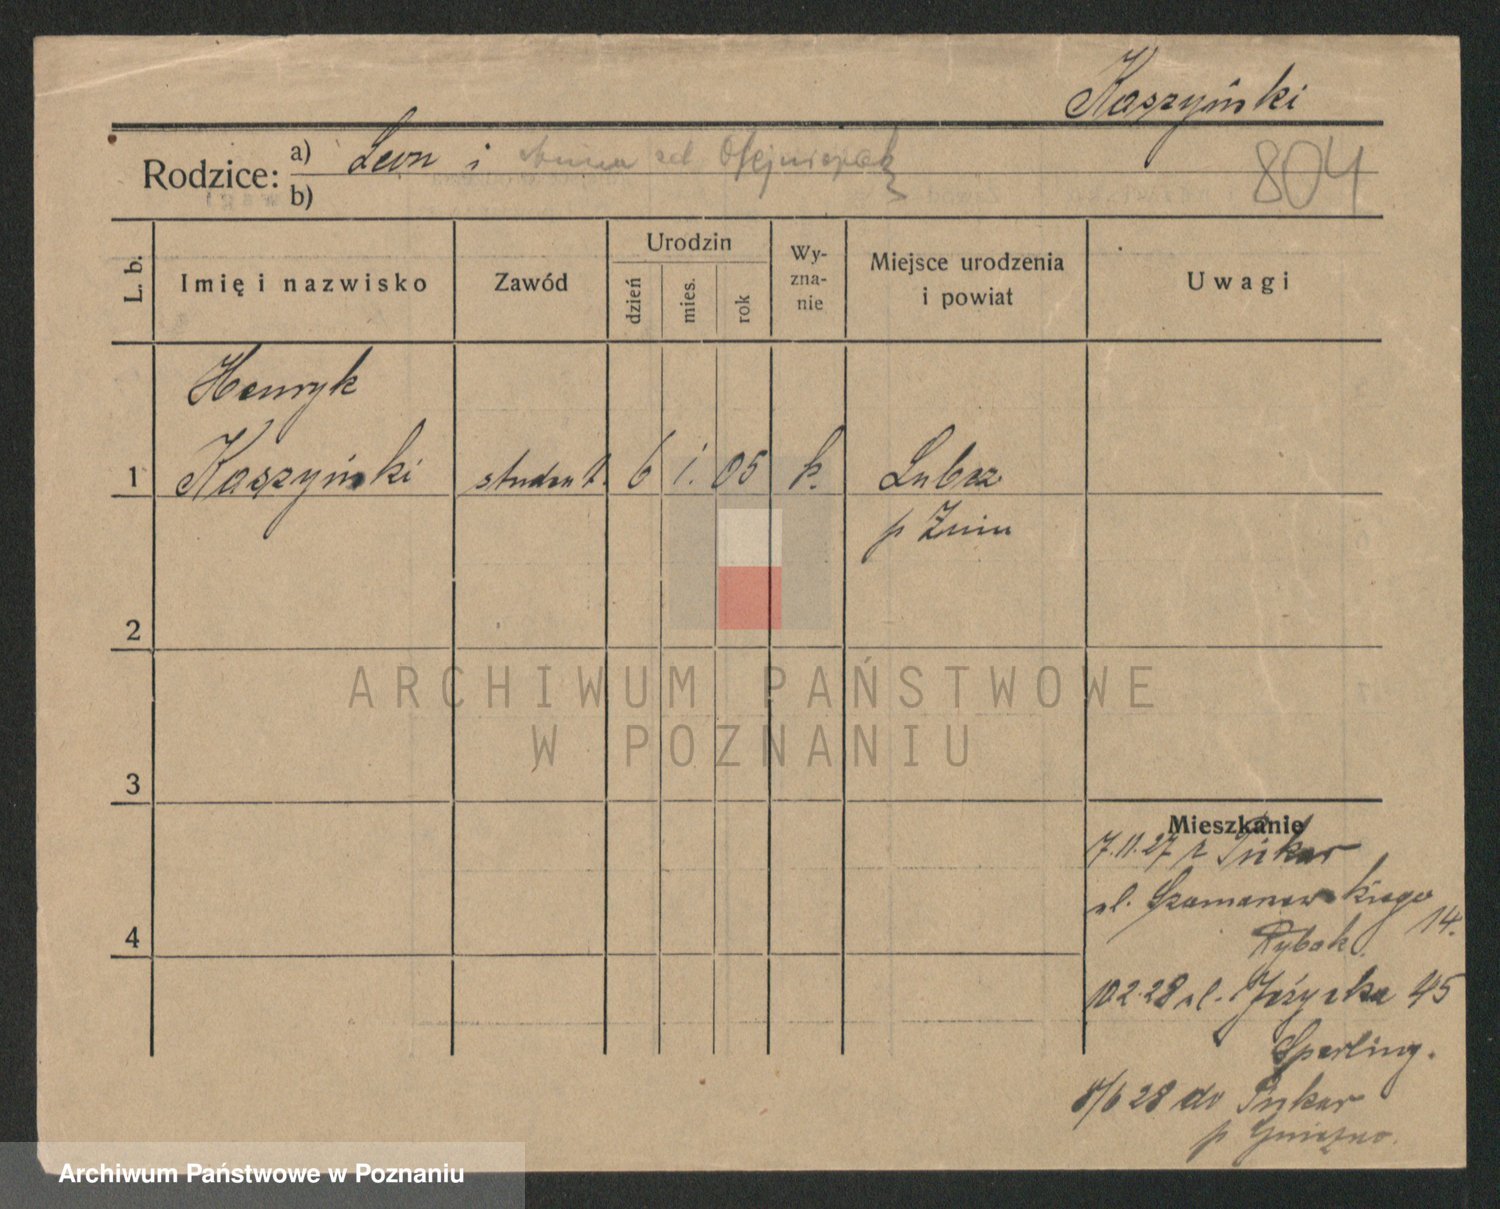 Kaszyński
Rodzice: a) Leon i Anna
b)
804
L. b.
Imię i nazwisko
Zawód
Urodzin
dzień
mies.
rok
Wy-
zna-
nie
Miejsce urodzenia
i powiat
Uwagi
Henryk
1 Kaszyński student. 6 1. 05 k. Lubcz
p Żnin
2
3
4
Mieszkanie
7.11.27 z
ul. Szamarzewskiego
14.
Rybak.
10.2.28 ul. Jeżycka 45
Sperling.
8/6 28 do
p Gniezno.
ARCHIWUM PAŃSTWOWE
W POZNANIU
Archiwum Państwowe w Poznaniu